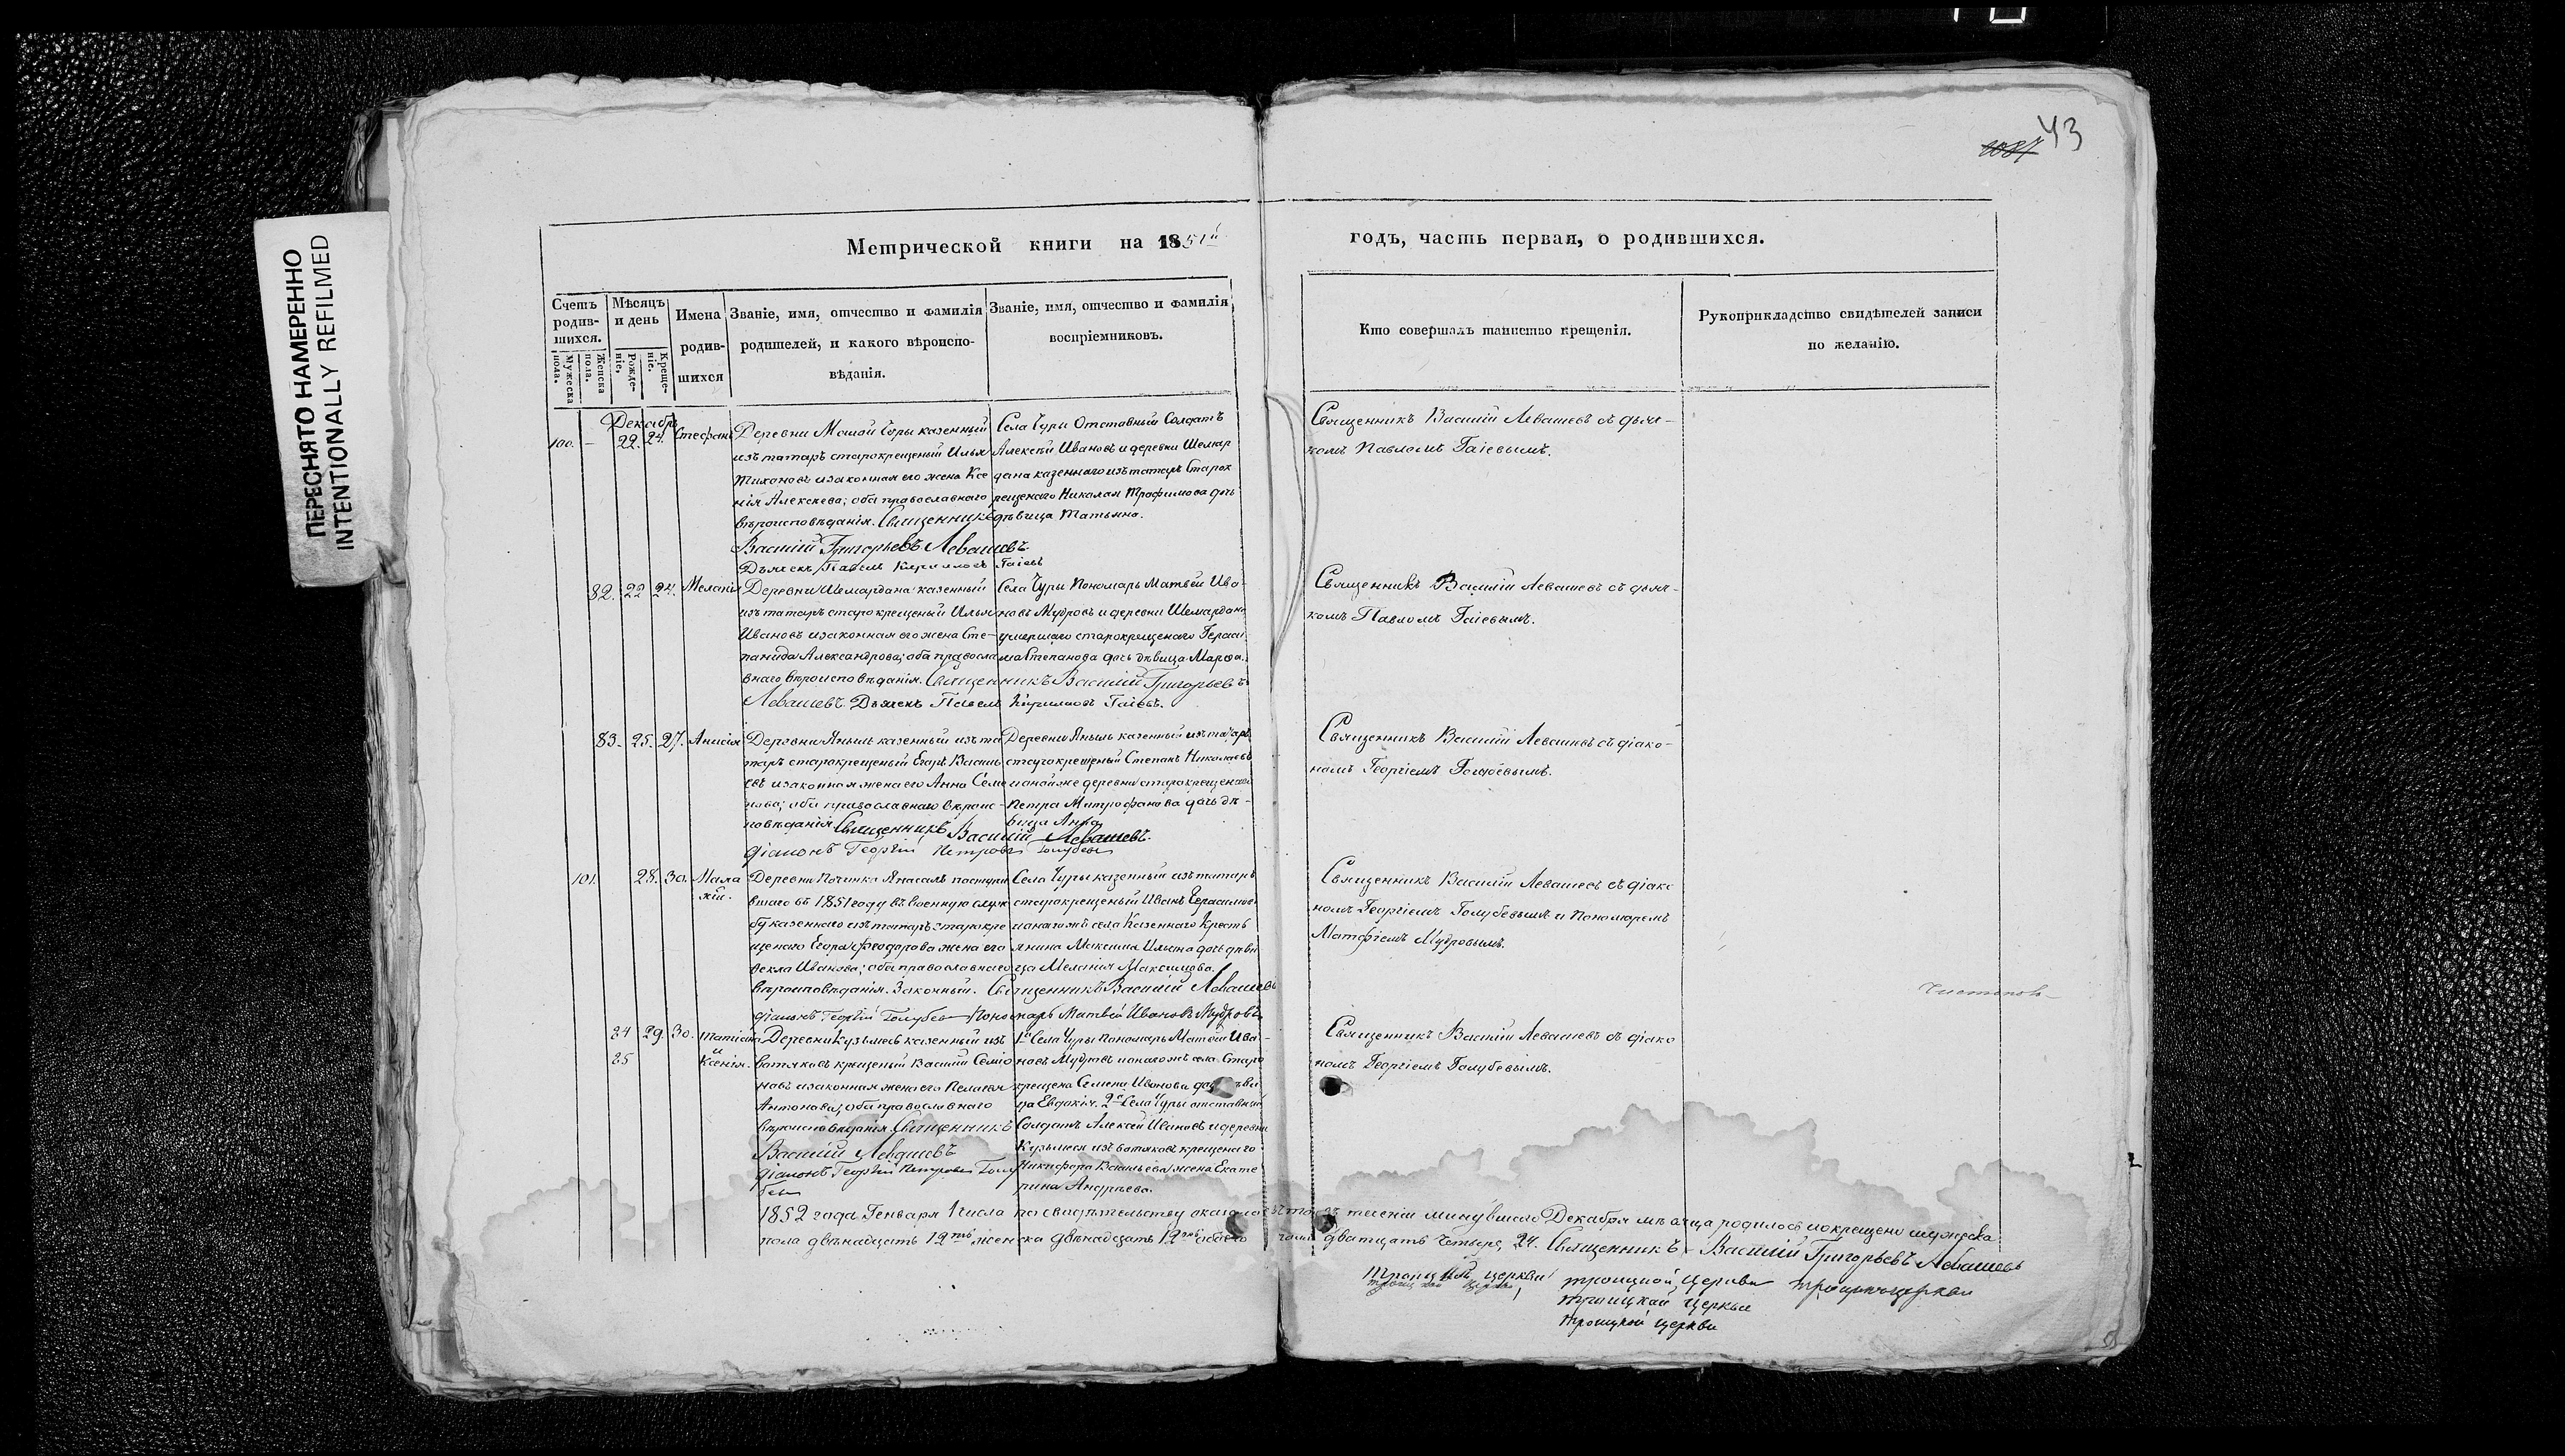 ПЕРЕСНЯТО НАМЕРЕННО
INTENTIONALLY REFILMED
1087 43
Метрической книги на 1851й
годъ, часть первая, о родившихся.
Счетъ родив-шихся.
Мужеска пола.
Женска пола.
Мѣсяцъ и день
Рожде-ніе.
Креще-ніе.
Имена
родив-
шихся
Званіе, имя, отчество и фамилія
родителей, и какого вѣроиспо-
вѣданія.
Званіе, имя, отчество и фамилія
воспріемниковъ.
Кто совершалъ таинство крещенія.
Рукоприкладство свидѣтелей записи
по желанію.
Декабрь
100. – 22. 24. Стефанъ
Деревни Малой Чуры казенный
изъ татаръ старокрещеный Илья
Тихоновъ и законная его жена Ксе
нія Алексеева; оба православнаго
вѣроисповѣданія. Священникъ
Василій Григорьевъ Левашевъ.
Дьячекъ Павелъ Кириловъ Гаіевъ
Села Чуры Отставный Солдатъ
Алексѣй Ивановъ и деревни Шемар
дана казеннаго изъ татаръ Старок
рещенаго Николая Трофимова дочь
дѣвица Татьяна.
Священникъ Василій Левашевъ съ дьяч-
комъ Павломъ Гаіевымъ.
82. 22 24. Меланія
Деревни Шемардана казенный
изъ татаръ старокрещеный Илья
Ивановъ и законная его жена Сте-
панида Александрова; оба правосла
внаго вѣроисповѣданія. Священникъ Василій Григорьевъ
Левашевъ. Дьячекъ Павелъ Кириловъ Гаіевъ.
Села Чуры Пономарь Матвѣй Ива-
новъ Мудровъ и деревни Шемардана
умершаго старокрещенаго Гераси
ма Степанова дочь дѣвица Марѳа.
Священникъ Василій Левашевъ съ дьяч-
комъ Павломъ Гаіевымъ.
83. 25. 27. Анисія
Деревни Яныль казенный изъ та
таръ старокрещеный Егоръ Василь
евъ и законная жена его Анна Семе
нова; оба православнаго вѣроис-
повѣданія Священникъ Василій Левашевъ.
діаконъ Георгій Петровъ Голубевъ
Деревни Яныль казенный изъ татаръ
старокрещеный Степанъ Николаевъ
и оной же деревни старокрещенаго
Петра Митрофанова дочь дѣ-
вица Анна
Священникъ Василій Левашевъ съ діако-
номъ Георгіемъ Голубевымъ.
101. 28. 30. Мала
хій.
Деревни Починка Янасалъ поступи
вшаго въ 1851 году въ военную служ
бу казеннаго изъ татаръ старокре
щенаго Егора Ѳеодорова жена его
Ѳекла Иванова; оба православнаго
вѣроисповѣданія. Законный. Священникъ Василій Левашевъ
діаконъ Георгій Голубевъ Пономарь Матвѣй Ивановъ Мудровъ
Села Чуры казенный изъ татаръ
старокрещеный Иванъ Герасимовъ
и онагожъ села Казеннаго Кресть
янина Максима Ильина дочь дѣви
ца Меланія Максимова.
Священникъ Василій Левашевъ съ діако
номъ Георгіемъ Голубевымъ и Пономаремъ
Матѳіемъ Мудровымъ.
84 29. 30. Татіана
85 и Ксенія.
Деревни Кузьмесъ казенный изъ
вотяковъ крещеный Василій Семіо
новъ и законная жена его Пелагея
Антонова; оба православнаго
вѣроисповѣданія. Священникъ
Василій Левашевъ
діаконъ Георгій Петровъ Голу
бевъ
1й Села Чуры Пономарь Матвей Ива-
новъ Мудровъ и онагожъ села Старо
крещена Семена Иванова дочь дѣви
ца Евдокія. 2й Села Чуры отставный
Солдатъ Алексѣй Ивановъ и деревни
Кузьмеся изъ вотяковъ крещенаго
Никифора Васильева жена Екате
рина Андреева.
Священникъ Василій Левашевъ съ діако
номъ Георгіемъ Голубевымъ.
1852 года Генваря 1 числа по свидѣтельству оказалось что въ теченіи минувшаго Декабря мѣсяца родилось и крещено мужеска
пола двѣнадцать 12ть женска двѣнадцать 12ть обоего дватцать четыре, 24. Священникъ Василій Григорьевъ Левашевъ
Троицкой церкви троицкой церкви троицкой церкви
троицкой церкви
троицкой церкви
троицкой церкви